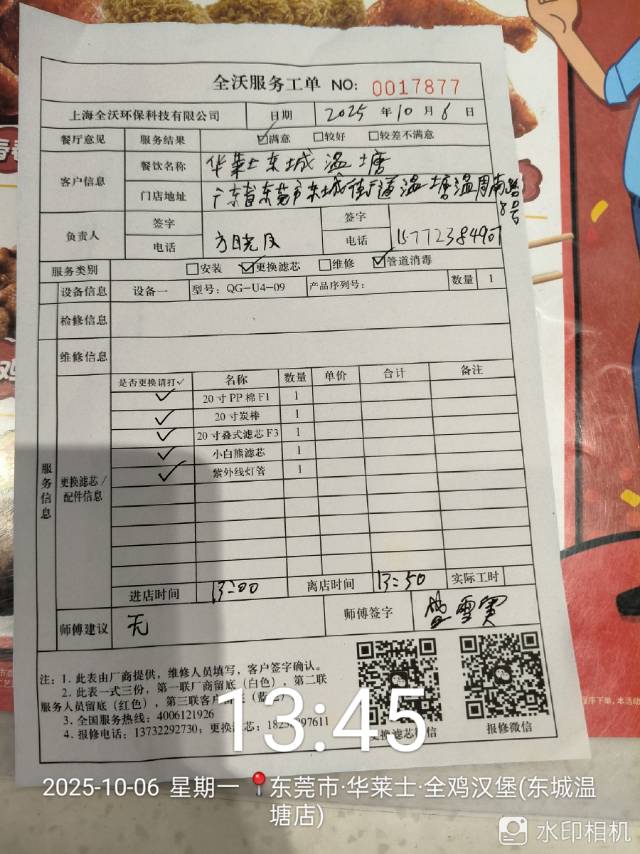 全沃服务工单 NO: 0017877
上海全沃环保科技有限公司 日期 2025 年 10 月 6 日
餐厅意见 服务结果 ☑满意 □较好 □较差不满意
客户信息 餐饮名称 华莱士东城温塘
门店地址 广东省东莞市东城街道温塘温周南路8号
负责人 签字 签字
电话 方晓 电话 15772384907
服务类别 □安装 ☑更换滤芯 □维修 ☑管道消毒
设备信息 设备一 型号: QG-U4-09 产品序列号: 数量 1
检修信息
维修信息
服务信息
更换滤芯/配件信息
是否更换请打✓ 名称 数量 单价 合计 备注
✓ 20寸PP棉F1 1
✓ 20寸炭棒 1
✓ 20寸叠式滤芯F3 1
✓ 小白熊滤芯 1
✓ 紫外线灯管 1
进店时间 13:00 离店时间 13:50 实际工时
师傅建议 无 师傅签字
注: 1. 此表由厂商提供，维修人员填写，客户签字确认。
2. 此表一式三份，第一联厂商留底（白色），第二联
服务人员留底（红色），第三联客户（蓝
3. 全国服务热线: 4006121926
4. 报修电话: 13732292730; 更换滤芯: 182 97611
滤芯微信 报修微信
13:45
2025-10-06 星期一 东莞市·华莱士·全鸡汉堡(东城温
塘店)
水印相机